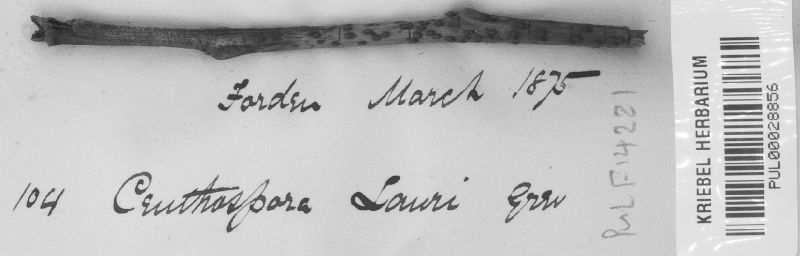 Forden March 1875
104 Ceuthospora Lauri Grev
PUL F14221
KRIEBEL HERBARIUM
PUL00028856